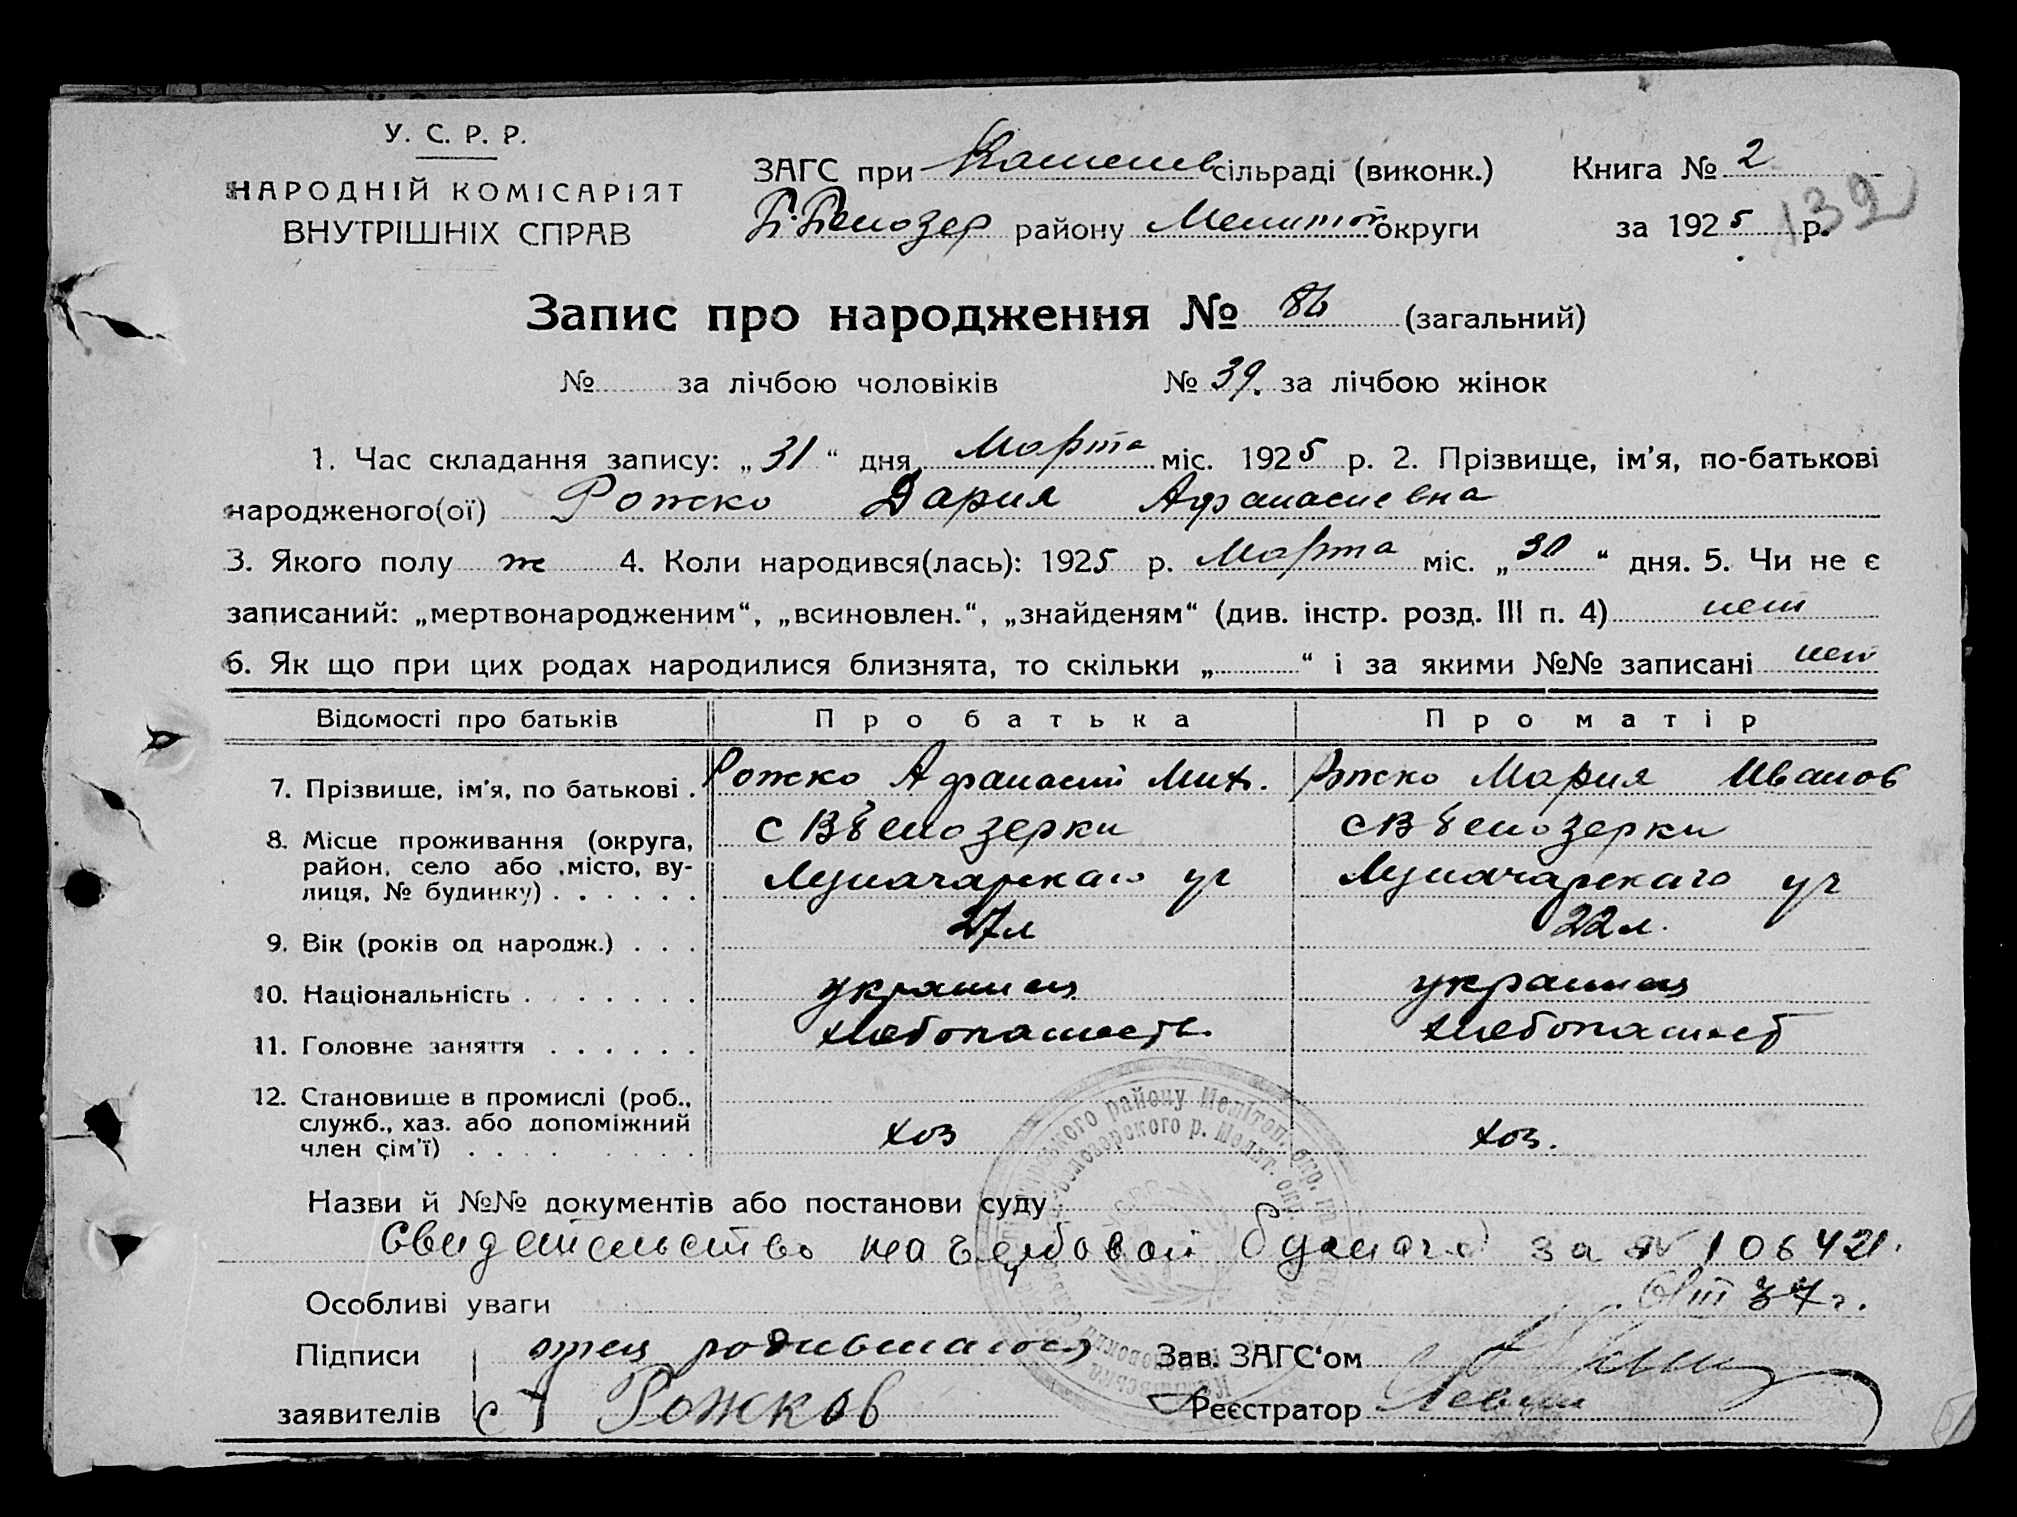 У. С. Р. Р.
НАРОДНІЙ КОМІСАРІЯТ
ВНУТРІШНІХ СПРАВ
ЗАГС при сільраді (виконк.)
Б. Белозер району Мелитоп округи
Книга № 2
за 1925 р.
139
Запис про народження № 86 (загальний)
№ за лічбою чоловіків № 39. за лічбою жінок
1. Час складання запису: „31“ дня Марта міс. 1925 р. 2. Прізвище, ім'я, по-батькові
народженого(ої) Рожко Дария Афанасиевна
3. Якого полу ж 4. Коли народився(лась): 1925 р. Марта міс. „30“ дня. 5. Чи не є
записаний: „мертвонародженим“, „всиновлен.“, „знайденям“ (див. інстр. розд. III п. 4) нет
6. Як що при цих родах народилися близнята, то скільки „ “ і за якими №№ записані нет
Відомості про батьків Про батька Про матір
7. Прізвище, ім'я, по батькові . Рожко Афанасий Мих. Рожко Мария Иванов
8. Місце проживання (округа, с В Белозерки с В Белозерки
район, село або місто, ву-
лиця, № будинку) . . . . . . Луначарскаго уч Луначарскаго уч
9. Вік (років од народж.) . . . 27 л 22 л.
10. Національність . . . . . . . украинец украинец
11. Головне заняття . . . . . . хлебопашеств. хлебопашест
12. Становище в промислі (роб.,
служб., хаз. або допоміжний хоз хоз.
член сім'ї) . . . . . . . . .
Назви й №№ документів або постанови суду
Свидетельство на гербовой бумаге за № 106421.
Особливі уваги 37 г.
Підписи отец родившагося Зав. ЗАГС'ом
заявителів Рожков Реєстратор